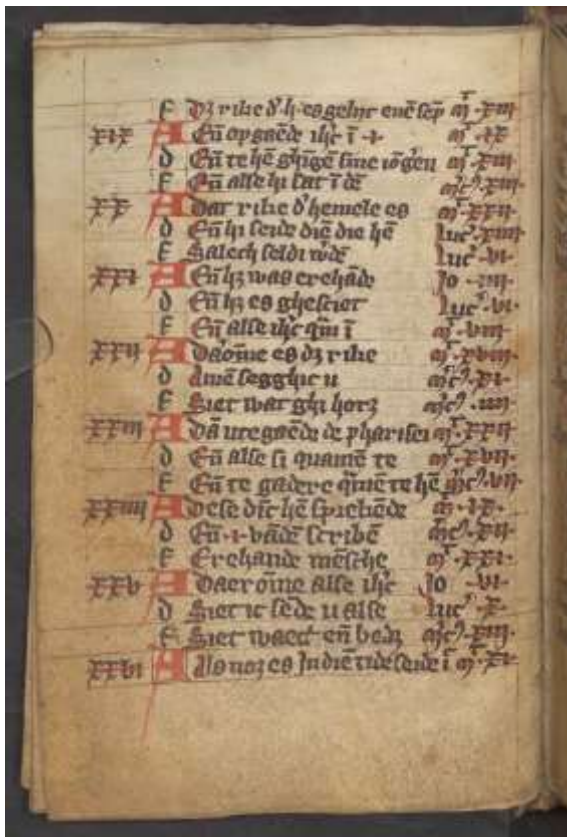 F Dʒ rike dʼ h es gehyt enē sep̄ mͭ · xiii
xix A En̄ opgaēde ihc̄ ī
d En̄ te hē ghīgē sine iōgʼen mͭ · xiii
F En̄ alse hi sat ī dē mc̄ʼ · xiii
xx A Dat rike dʼ hemele es mͭ · xxii
d En̄ hi seide diē die hē Lucʼ · xiiii
F Salech seldi wʼdē Lucʼ · vi
xxi A En̄ hʒ was erehāde Jo · iiii
d En̄ hʒ es ghesciet Lucʼ · vi
F En̄ alse ihc̄ qʼm ī mͭ · viii
xxii A Daʼōme es dʒ rike mͭ · xviii
d Amē segghic u mc̄ʼ · xi
F Siet wat ghi hortʒ mc̄ʼ · iiii
xxiii A Dā utegaēde de pharisei mͭ · xxii
d En̄ alse si quamē te mͭ · xvii
F En̄ te gadere qʼmē te hē mc̄ʼ · vii
xxiiii A Dese dīc hē sprekēde mͭ · ix
d En̄ · i · vādē scribē mc̄ʼ · xii
F Erehande mēsche mͭ · xxi
xxv A Daer ōme alse ihc̄ Jo · vi
d Siet ic sēde u alse Lucʼ · x
F Siet waect en̄ bedʒ mc̄ʼ · xiii
xxvi A Als noʒ es In diē tide seide ī mͭ · xi